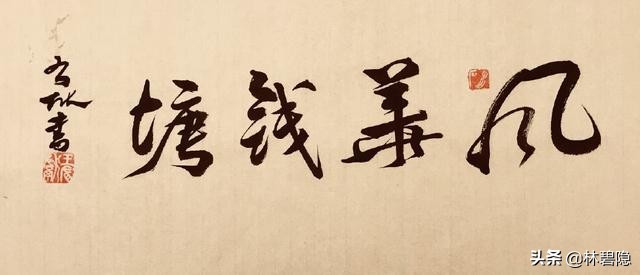 风华钱塘
书
头条 @林碧隐